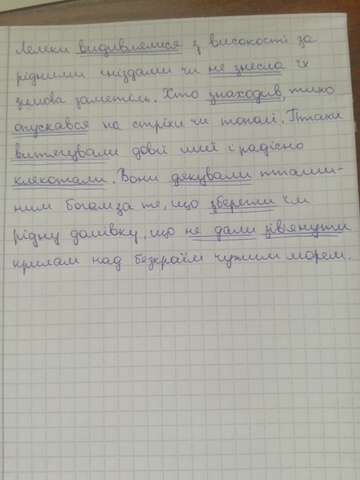 Лелеки видивлялися з високості за
рідними гніздами чи не знесла їх
зимова заметіль. Хто знаходив, тихо
опускався на стріхи чи тополі. Птахи
витягували довгі шиї і радісно
клекотали. Вони дякували пташи-
ним богам за те, що зберегли їм
рідну домівку, що не дали зів'янути
крилам над безкраїм чужим морем.